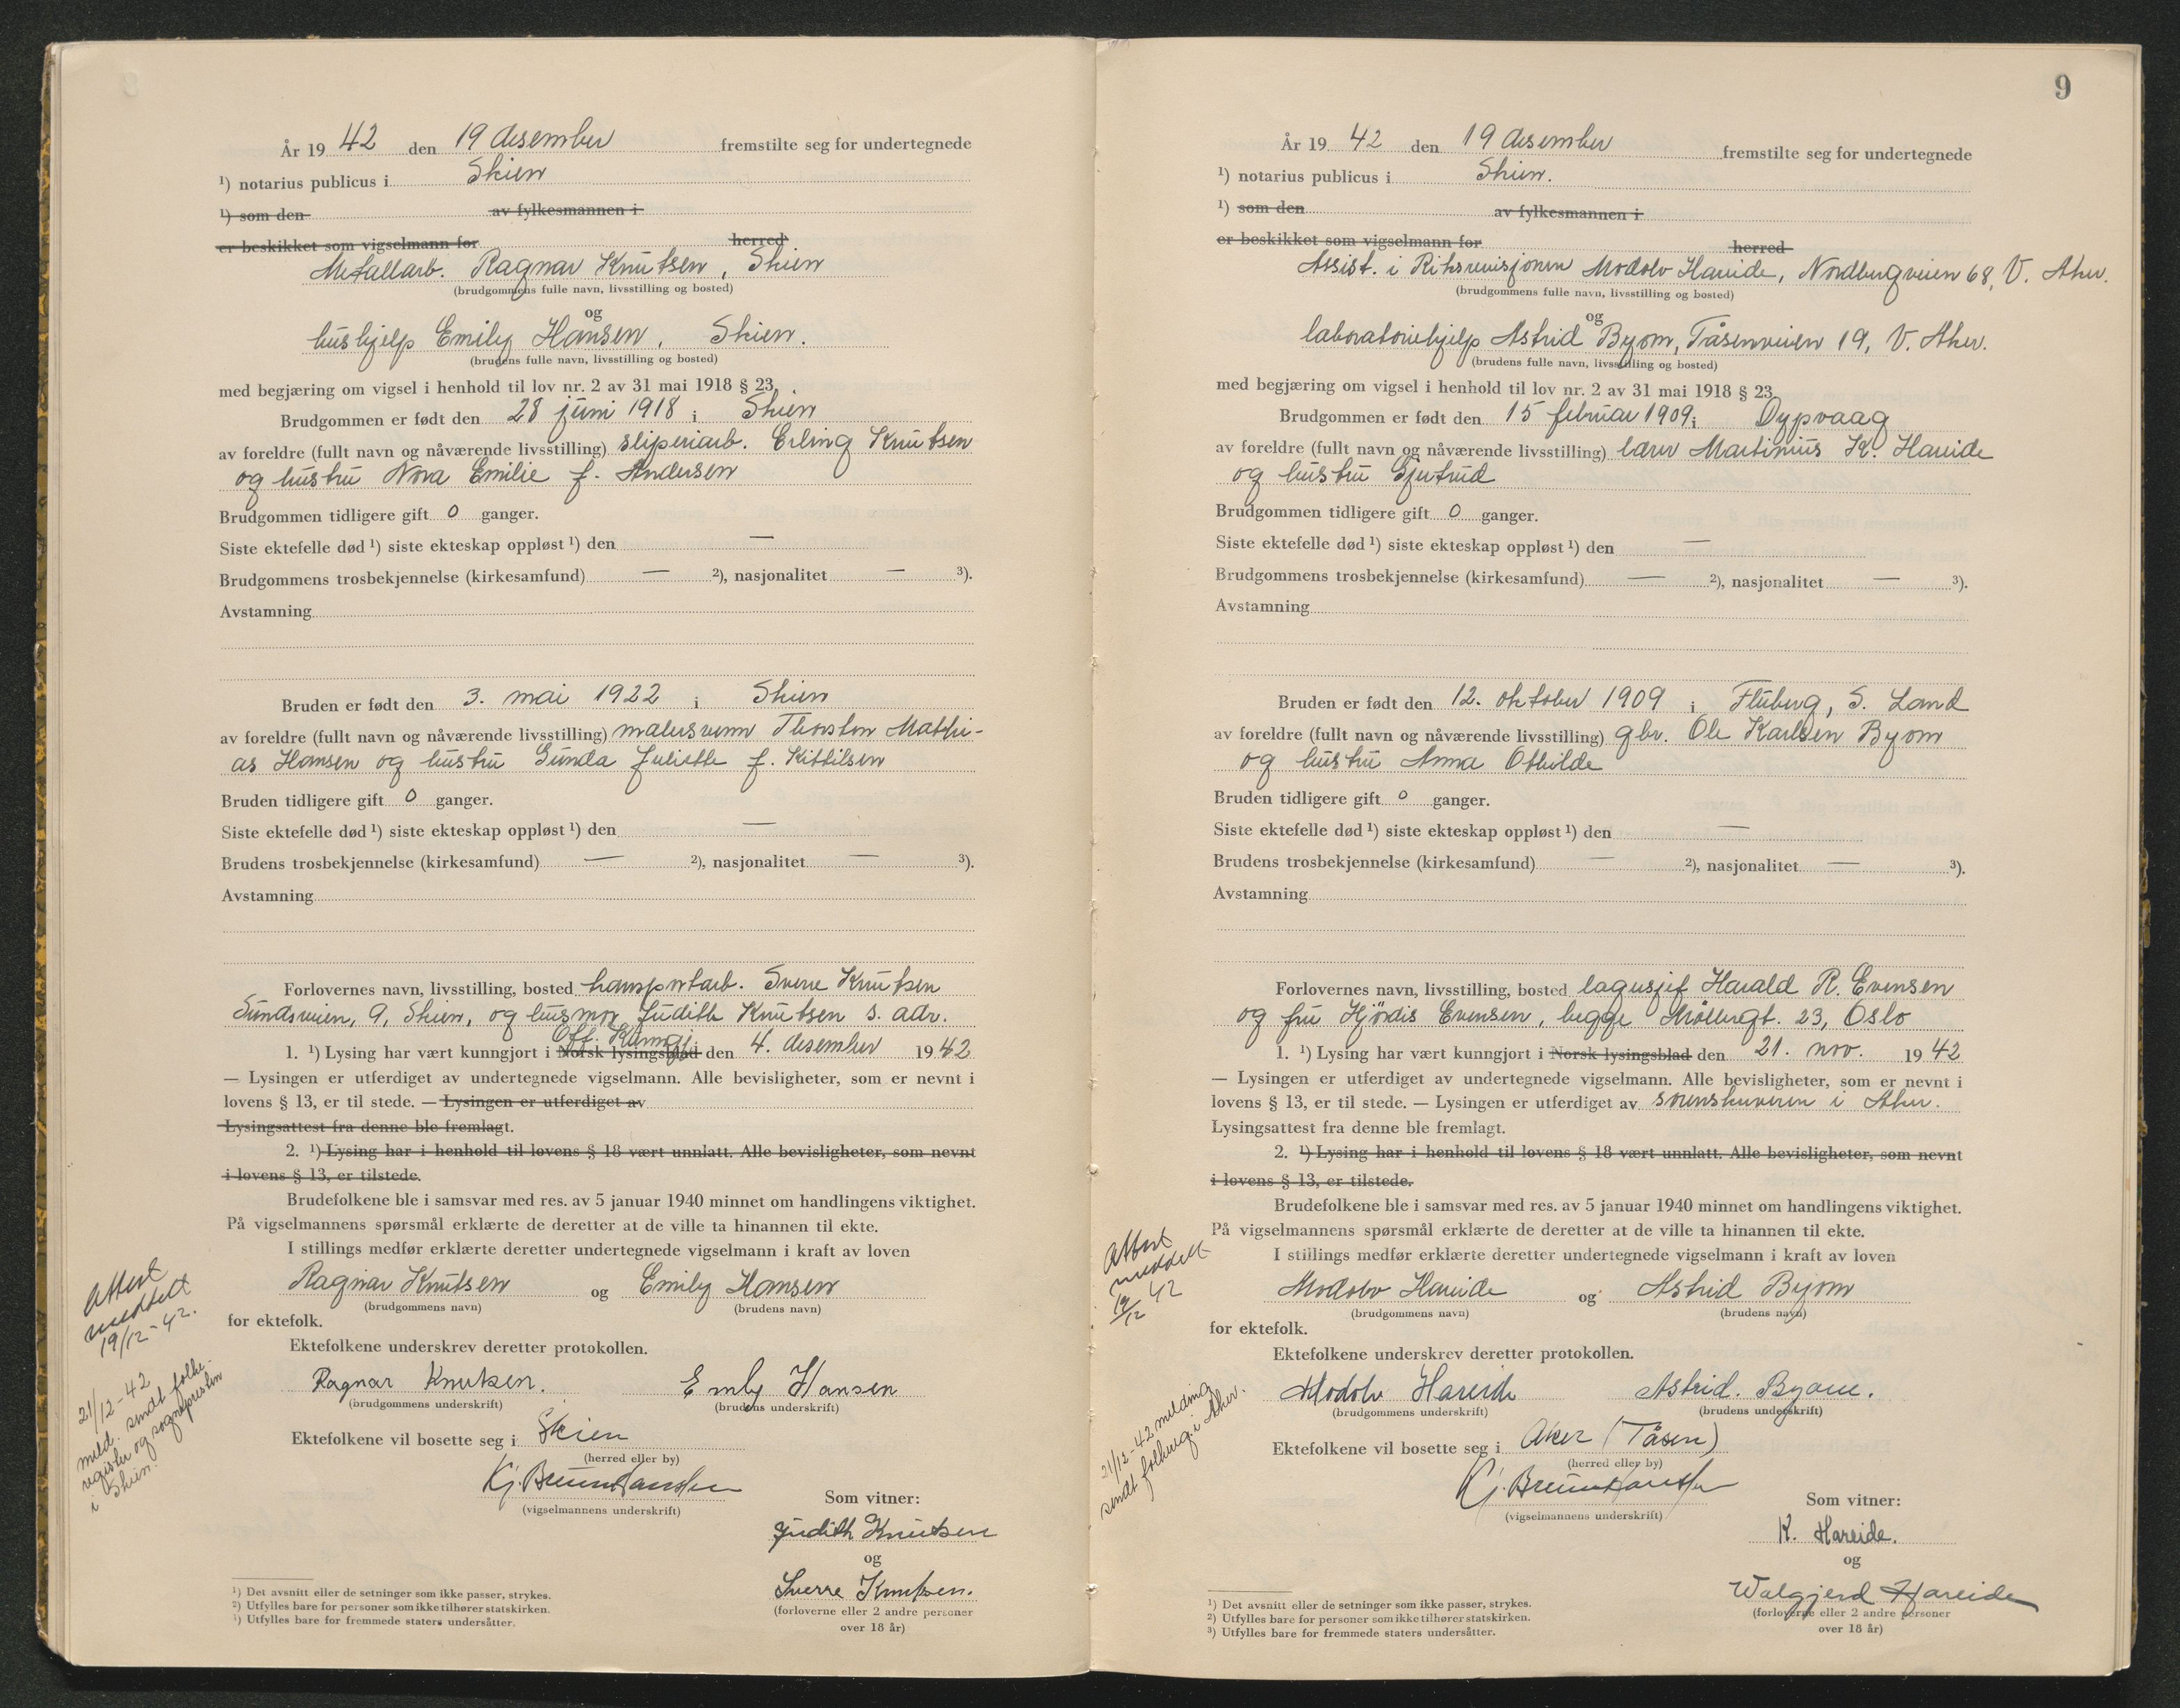 År 19 42 den 19 desember fremstilte seg for undertegnede
¹) notarius publicus i Skien
¹) som den av fylkesmannen i
er beskikket som vigselmann for herred
Metallarb. Ragnar Knutsen, Skien
(brudgommens fulle navn, livsstilling og bosted)
og
hushjelp Emily Hansen, Skien.
(brudens fulle navn, livsstilling og bosted)
med begjæring om vigsel i henhold til lov nr. 2 av 31 mai 1918 § 23.
Brudgommen er født den 28 juni 1918 i Skien
av foreldre (fullt navn og nåværende livsstilling) sliperiarb. Erling Knutsen
og hustru Nora Emilie f. Andersen
Brudgommen tidligere gift 0 ganger.
Siste ektefelle død ¹) siste ekteskap oppløst ¹) den —
Brudgommens trosbekjennelse (kirkesamfund) — ²), nasjonalitet — ³).
Avstamning
Bruden er født den 3. mai 1922 i Skien
av foreldre (fullt navn og nåværende livsstilling) malersvenn Thorsten Matthi-
as Hansen og hustru Gunda Juliette f. Kittilsen
Bruden tidligere gift 0 ganger.
Siste ektefelle død ¹) siste ekteskap oppløst ¹) den —
Brudens trosbekjennelse (kirkesamfund) — ²), nasjonalitet — ³).
Avstamning
Forlovernes navn, livsstilling, bosted transportarb. Sverre Knutsen
Sundsveien, 9, Skien, og husmor Judith Knutsen s. adr.
Off. Kunngj.
1. ¹) Lysing har vært kunngjort i Norsk lysingsblad den 4. desember 1942
— Lysingen er utferdiget av undertegnede vigselmann. Alle bevisligheter, som er nevnt i
lovens § 13, er til stede. — Lysingen er utferdiget av
Lysingsattest fra denne ble fremlagt.
2. ¹) Lysing har i henhold til lovens § 18 vært unnlatt. Alle bevisligheter, som nevnt
i lovens § 13, er tilstede.
Brudefolkene ble i samsvar med res. av 5 januar 1940 minnet om handlingens viktighet.
På vigselmannens spørsmål erklærte de deretter at de ville ta hinannen til ekte.
I stillings medfør erklærte deretter undertegnede vigselmann i kraft av loven
Ragnar Knutsen og Emily Hansen
(brudgommens navn) (brudens navn)
for ektefolk.
Ektefolkene underskrev deretter protokollen.
Ragnar Knutsen. Emly Hansen
(brudgommens underskrift) (brudens underskrift)
Ektefolkene vil bosette seg i Skien
(herred eller by)
Kj. Bruun Hanssen
(vigselmannens underskrift)
Som vitner:
Judith Knutsen
og
Sverre Knutsen.
(forloverne eller 2 andre personer
over 18 år)
Attest
meddelt
19/12-42.
21/12-42
meld. sendt folke-
register og sognepresten
i Skien.
¹) Det avsnitt eller de setninger som ikke passer, strykes.
²) Utfylles bare for personer som ikke tilhører statskirken.
³) Utfylles bare for fremmede staters undersåtter.
9
År 19 42 den 19 desember fremstilte seg for undertegnede
¹) notarius publicus i Skien.
¹) som den av fylkesmannen i
er beskikket som vigselmann for herred
Assist. i Riksrevisjonen Modolv Hareide, Nordbergveien 68, V. Aker.
(brudgommens fulle navn, livsstilling og bosted)
og
laboratoriehjelp Astrid Byom, Tåsenveien 19, V. Aker.
(brudens fulle navn, livsstilling og bosted)
med begjæring om vigsel i henhold til lov nr. 2 av 31 mai 1918 § 23.
Brudgommen er født den 15 februar 1909 i Dypvaag
av foreldre (fullt navn og nåværende livsstilling) lærer Martinius K. Hareide
og hustru Gjertrud
Brudgommen tidligere gift 0 ganger.
Siste ektefelle død ¹) siste ekteskap oppløst ¹) den —
Brudgommens trosbekjennelse (kirkesamfund) — ²), nasjonalitet — ³).
Avstamning
Bruden er født den 12. oktober 1909 i Fluberg, S. Land
av foreldre (fullt navn og nåværende livsstilling) gbr. Ole Karlsen Byom
og hustru Anna Othilde
Bruden tidligere gift 0 ganger.
Siste ektefelle død ¹) siste ekteskap oppløst ¹) den —
Brudens trosbekjennelse (kirkesamfund) — ²), nasjonalitet — ³).
Avstamning
Forlovernes navn, livsstilling, bosted lagersjef Harald R. Evensen
og fru Hjördis Evensen, begge Møllergt. 23, Oslo
1. ¹) Lysing har vært kunngjort i Norsk lysingsblad den 21. nov. 1942
— Lysingen er utferdiget av undertegnede vigselmann. Alle bevisligheter, som er nevnt i
lovens § 13, er til stede. — Lysingen er utferdiget av sorenskriveren i Aker.
Lysingsattest fra denne ble fremlagt.
2. ¹) Lysing har i henhold til lovens § 18 vært unnlatt. Alle bevisligheter, som nevnt
i lovens § 13, er tilstede.
Brudefolkene ble i samsvar med res. av 5 januar 1940 minnet om handlingens viktighet.
På vigselmannens spørsmål erklærte de deretter at de ville ta hinannen til ekte.
I stillings medfør erklærte deretter undertegnede vigselmann i kraft av loven
Modolv Hareide og Astrid Byom
(brudgommens navn) (brudens navn)
for ektefolk.
Ektefolkene underskrev deretter protokollen.
Modolv Hareide Astrid. Byom.
(brudgommens underskrift) (brudens underskrift)
Ektefolkene vil bosette seg i Aker (Tåsen)
(herred eller by)
Kj. Bruun Hanssen
(vigselmannens underskrift)
Som vitner:
K. Hareide.
og
Walgjerd Hareide
(forloverne eller 2 andre personer
over 18 år)
Attest
meddelt
19/12 42
21/12-42 melding
sendt folkereg. i Aker.
¹) Det avsnitt eller de setninger som ikke passer, strykes.
²) Utfylles bare for personer som ikke tilhører statskirken.
³) Utfylles bare for fremmede staters undersåtter.